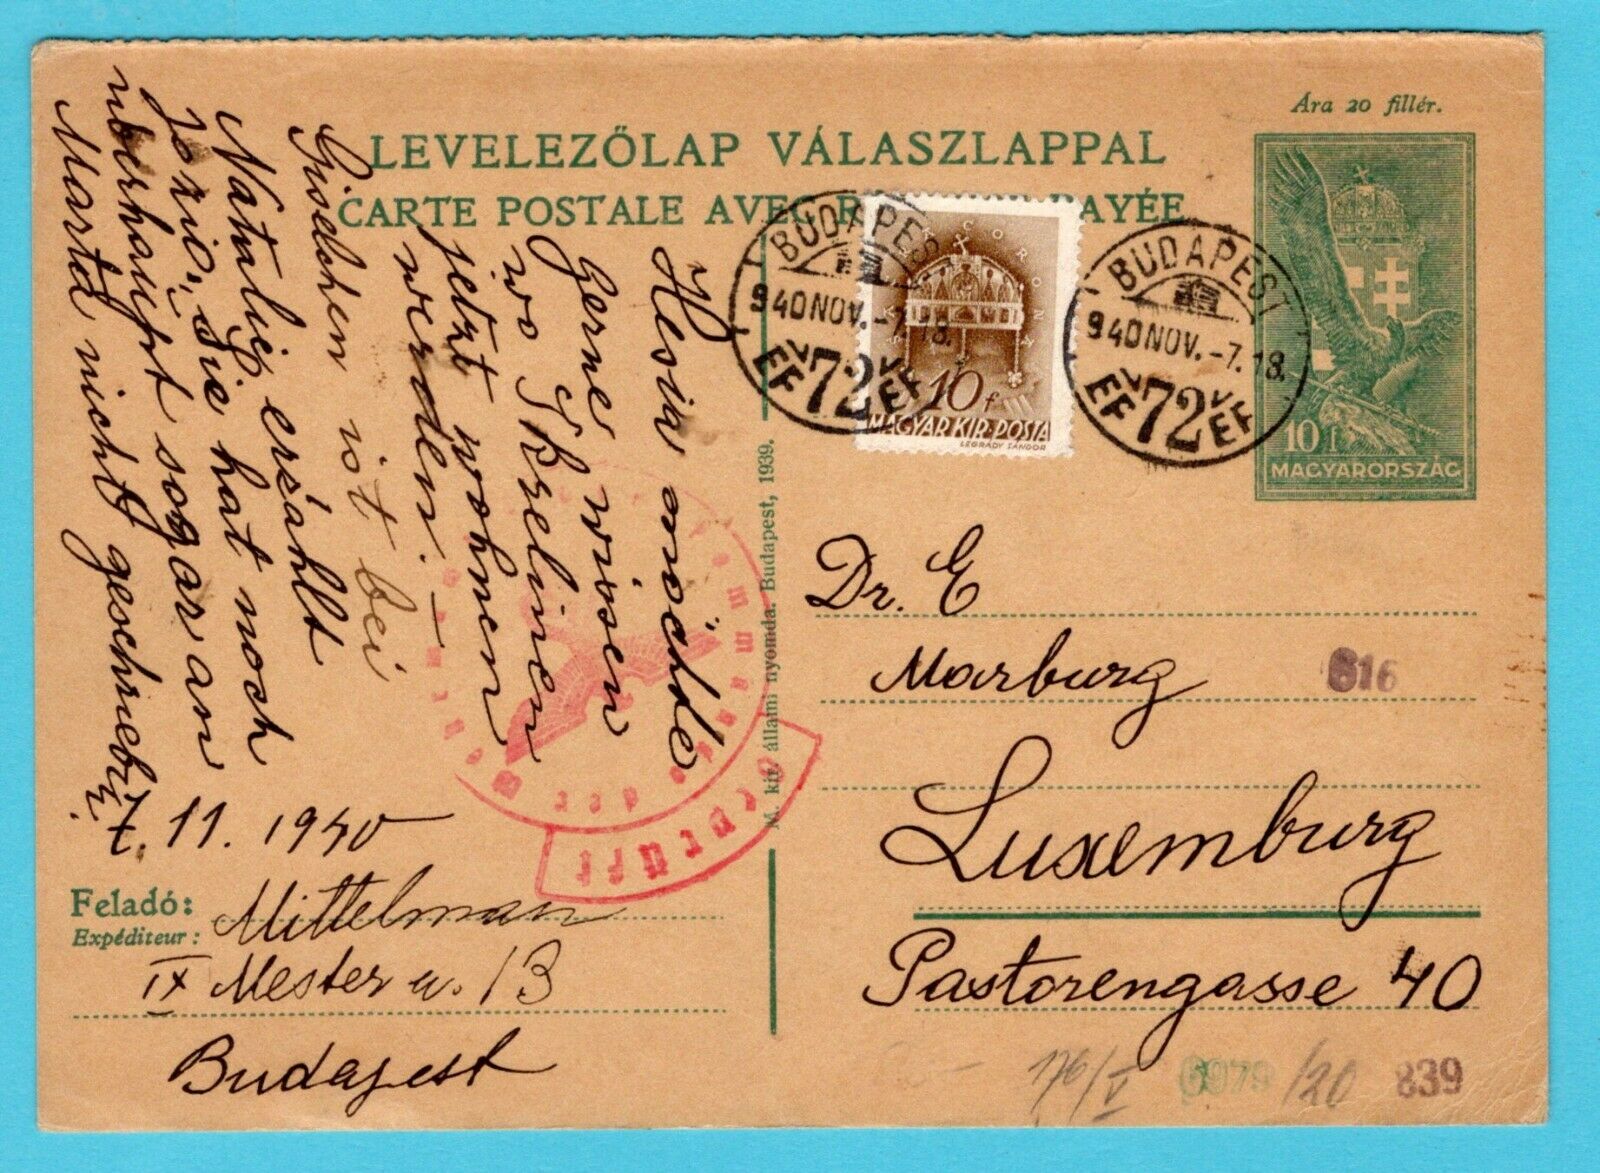 Ára 20 fillér.
LEVELEZŐLAP VÁLASZLAPPAL
CARTE POSTALE AVEC R PAYÉE
BUDAPEST
940 NOV. -7. 18.
72
EF EF
CORON
10 f
MAGYAR KIR. POSTA
LÉGRÁDY SÁNDOR
BUDAPEST
940 NOV. -7. 18.
72
EF EF
10 f
MAGYARORSZÁG
M. kir. állami nyomda. Budapest, 1939.
möchte
Gerne wissen
wo
jetzt wohnen
werden. –
Giselchen ist bei
Natalie, erzählt
Sie hat noch
überhaupt sogar an
Marta nicht geschrieben
7. 11. 1940
Feladó: Mittelman
Expéditeur:
IX Mester u. 13
Budapest
Dr. E
Marburg
616
Luxemburg
Pastorengasse 40
176/V
6979
/20
839
der